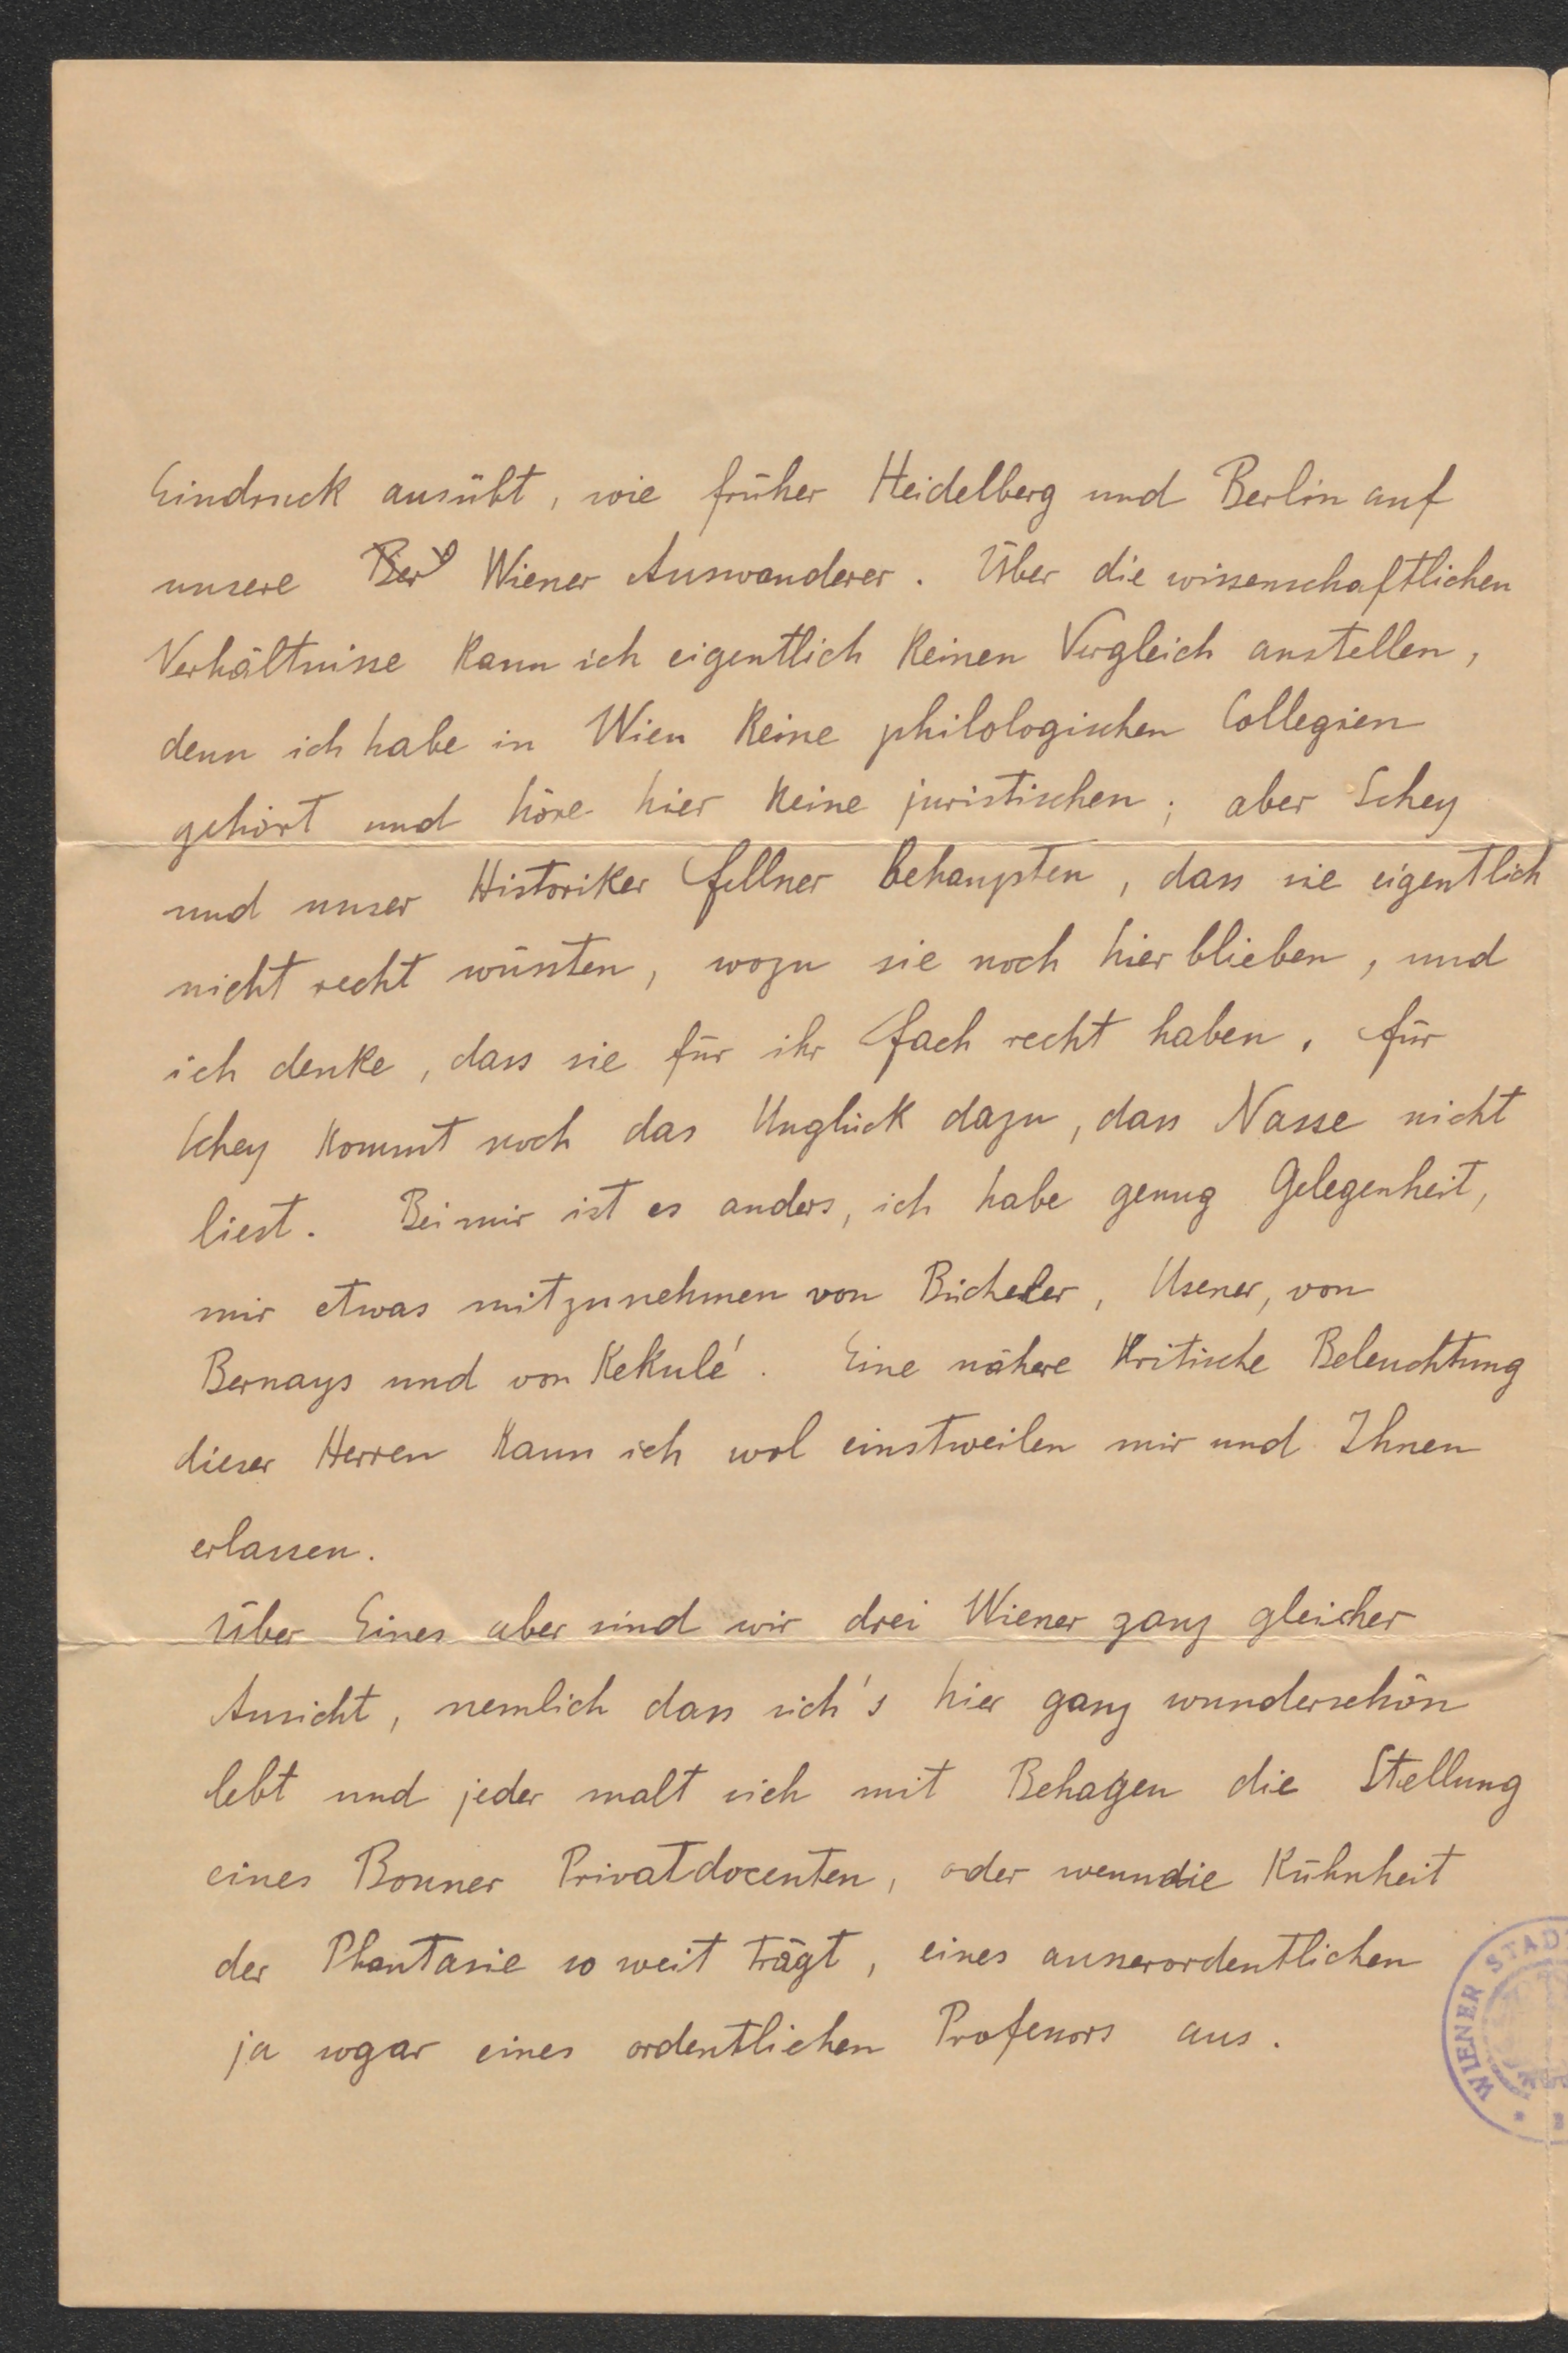 Eindruck ausübt, wie früher Heidelberg und Berlin auf
unsere Ber Wiener Auswanderer. Über die wissenschaftlichen
Verhältnisse kann ich eigentlich keinen Vergleich anstellen,
denn ich habe in Wien keine philologischen Collegien
gehört und höre hier keine juristischen; aber Schey
und unser Historiker Fellner behaupten, dass sie eigentlich
nicht recht wüssten, wozu sie noch hier blieben, und
ich denke, dass sie für ihr Fach recht haben. Für
Schey kommt noch das Unglück dazu, dass Nasse nicht
liest. Bei mir ist es anders, ich habe genug Gelegenheit,
mir etwas mitzunehmen von Bücheler, Usener, von
Bernays und von Kekulé. Eine nähere kritische Beleuchtung
dieser Herren kann ich wol einstweilen mir und Ihnen
erlassen.
Über Eines aber sind wir drei Wiener ganz gleicher
Ansicht, nemlich dass sich's hier ganz wunderschön
lebt und jeder malt sich mit Behagen die Stellung
eines Bonner Privatdocenten, oder wenn die Kühnheit
der Phantasie so weit trägt, eines ausserordentlichen
ja sogar eines ordentlichen Professors aus.
WIENER STAD